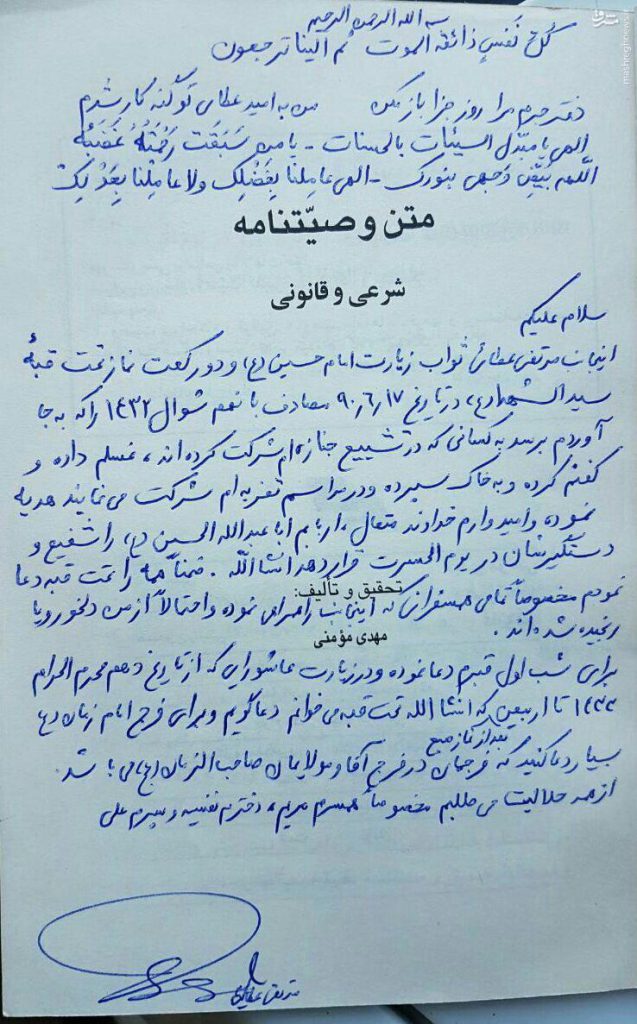 بسم الله الرحمن الرحیم
کل نَفسٍ ذائقه الموت ثم الینا ترجعون
دفتر جرم مرا روز جزا باز مکن من به امید عطای تو گنه کار شدم
الهی یا مبدّل السیئات بالحسنات - یا من سَبَقَت رَحمَتُهُ غَضَبَهُ
اللهم بَیِّض وَجهی بنورک - الهی عامِلنا بِفَضلِک ولا عامِلنا بِعَدلِک
متن وصیّتنامه
شرعی و قانونی
سلام علیکم
اینجانب مرتضی عطائی ثواب زیارت امام حسین (ع) و دو رکعت نماز تحت قبهٔ
سیدالشهدا (ع) در تاریخ ۹۰/۶/۱۷ مصادف با نهم شوال ۱۴۳۲ را که به جا
آوردم برسد به کسانی که در تشییع جنازه ام شرکت کرده اند، غسلم داده و
کفنم کرده و به خاک سپرده و در مراسم تعزیه ام شرکت می نمایند هدیه
نموده و امیدوارم خداوند متعال، اربابم ابا عبدالله الحسین (ع) را شفیع و
دستگیرشان در یوم الحسرت قرار دهد انشاالله. ضمناً همه را تحت قبه دعا
تحقیق و تألیف:
نمودم مخصوصاً تمامی همسفرانی که اینجانب را همراهی نموده و احتمالاً از من دلخور و یا
مهدی مؤمنی
رنجیده شده اند.
برای شب اول قبرم دعا نموده و در زیارت عاشورایی که از تاریخ دهم محرم الحرام
۱۴۳۳ تا اربعین که انشا الله تحت قبه می خوانم دعاگویم و برای فرج امام زمان (ع)
بعد از نماز صبح
بسیار دعا کنید که فرجمان در فرج آقا و مولایمان صاحب الزمان (ع) می باشد.
از همه حلالیت می طلبم مخصوصاً همسرم مریم، دخترم نفیسه و پسرم علی
مرتضی عطایی
مشرق
mashreghnews